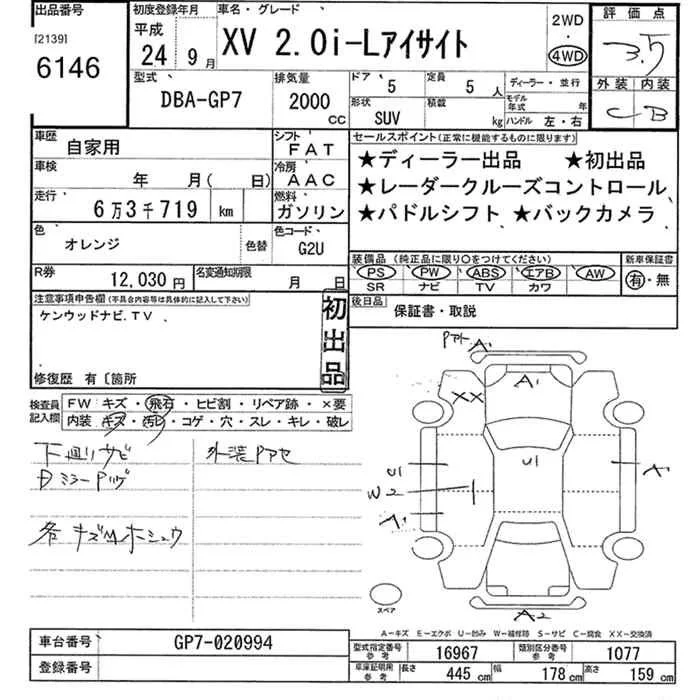 出品番号
[2139]
6146
初度登録年月
平成
24年 9月
車名・グレード
XV 2.0i-Lアイサイト
2WD
・
4WD
評価点
3.5
外装 内装
C B
型式
DBA-GP7
排気量
2000
cc
ドア
5
定員
5人
形状
SUV
積載
kg
ディーラー・並行
モデル年式 年
ハンドル 左・右
車歴
自家用
シフト
FAT
車検
年 月( 日)
冷房
AAC
走行
6万3千719 km
燃料
ガソリン
色
オレンジ
色替
色コード
G2U
R券
12,030円
名変通知期限
月 日
セールスポイント(正常に機能するものに限ります)
★ディーラー出品 ★初出品
★レーダークルーズコントロール
★パドルシフト ★バックカメラ
装備品 (純正品に限り○をつけてください)
PS PW ABS エアB AW
SR ナビ TV カワ
新車保証書
有・無
後日品
保証書・取説
注意事項申告欄(不具合内容等は具体的に記入して下さい)
ケンウッドナビ.TV
初出品
修復歴 有〔箇所
検査員記入欄
FW キズ・飛石・ヒビ割・リペア跡・×要
内装 キズ・汚れ・コゲ・穴・スレ・キレ・破レ
下廻りサビ
外装Pアセ
各キズ
A1
A1
XX
U1
U1
W2
A1
A1
A2
スペア
A−キズ E−エクボ U−凹み W−補修跡 S−サビ C−腐食 XX−交換済
車台番号
GP7-020994
登録番号
型式指定番号
参考
16967
類別区分番号
参考
1077
車庫証明用
参考
長さ
445 cm
幅
178 cm
高さ
159 cm